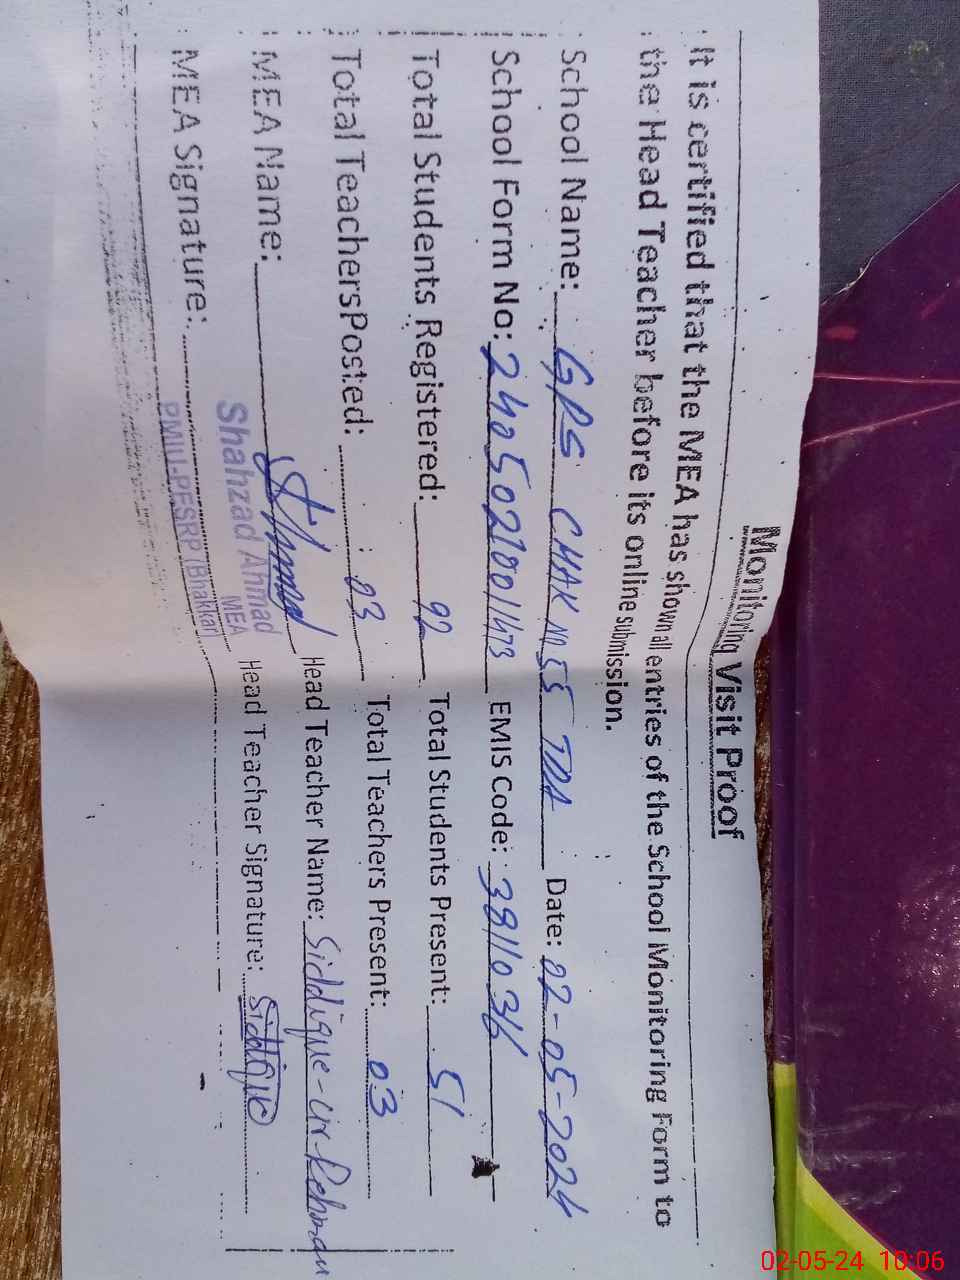 Monitoring Visit Proof
It is certified that the MEA has shown all entries of the School Monitoring Form to
the Head Teacher before its online submission.
School Name: GPS CHAK NO 55 TDA Date: 02-05-2024
School Form No: 2405021001473 EMIS Code: 38110316
Total Students Registered: 92 Total Students Present: 51
Total TeachersPosted: 03 Total Teachers Present: 03
MEA Name: Head Teacher Name: Siddique-ur-Rehman
Shahzad Ahmad
MEA
PMIU-PESRP (Bhakkar)
MEA Signature: Head Teacher Signature: Siddique
02-05-24 10:06